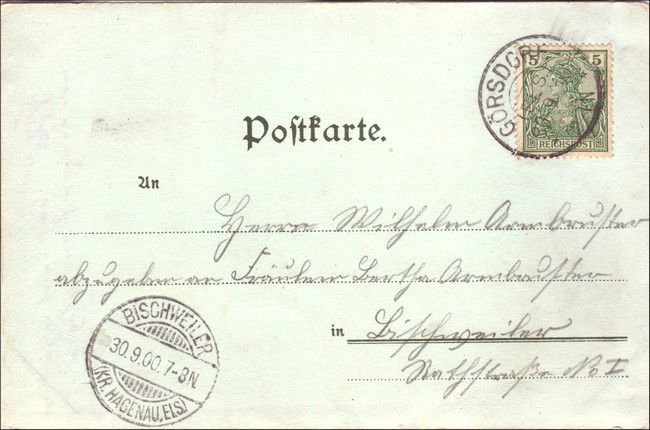 GÖRSDORF
5 5
REICHSPOST
Postkarte.
An
Herrn Wilhelm Armbruster
abzugeben an Fräulein Bertha Armbruster
in Bischweiler
Rathstraße No I
BISCHWEILER
30.9.00.7-8N.
(KR.HAGENAU,ELS)